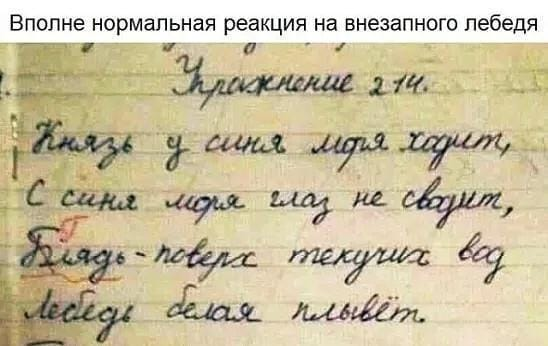 Вполне нормальная реакция на внезапного лебедя
Упражнение 214.
Князь у синя моря ходит,
С синя моря глаз не сводит,
Г
Блядь - поверх текучих вод
Лебедь белая плывёт.